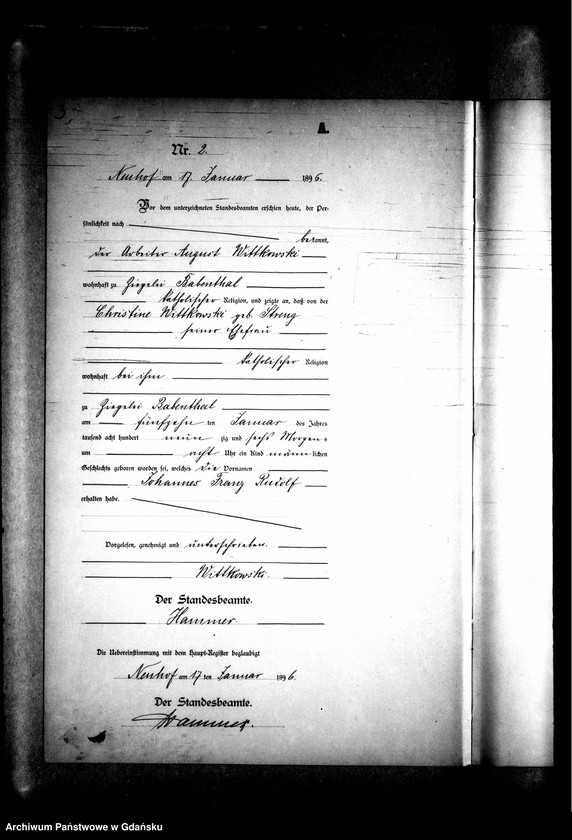 A.
Nr. 2.
Neuhof am 17. Januar 1896.
Vor dem unterzeichneten Standesbeamten erschien heute, der Per-
sönlichkeit nach
bekannt,
der Arbeiter August Wittkowski
wohnhaft zu Ziegelei Babenthal
katholischer Religion, und zeigte an, daß von der
Christine Wittkowski geb. Streng
seiner Ehefrau
katholischer Religion
wohnhaft bei ihm
zu Ziegelei Babenthal
am fünfzehn ten Januar des Jahres
tausend acht hundert neun zig und sechs Morgens
um acht Uhr ein Kind männlichen
Geschlechts geboren worden sei, welches die Vornamen
Johannes Franz Rudolf
erhalten habe.
Vorgelesen, genehmigt und unterschrieben.
Wittkowski.
Der Standesbeamte.
Hammer
Die Uebereinstimmung mit dem Haupt-Register beglaubigt
Neuhof am 17 ten Januar 1896.
Der Standesbeamte.
Hammer.
Archiwum Państwowe w Gdańsku